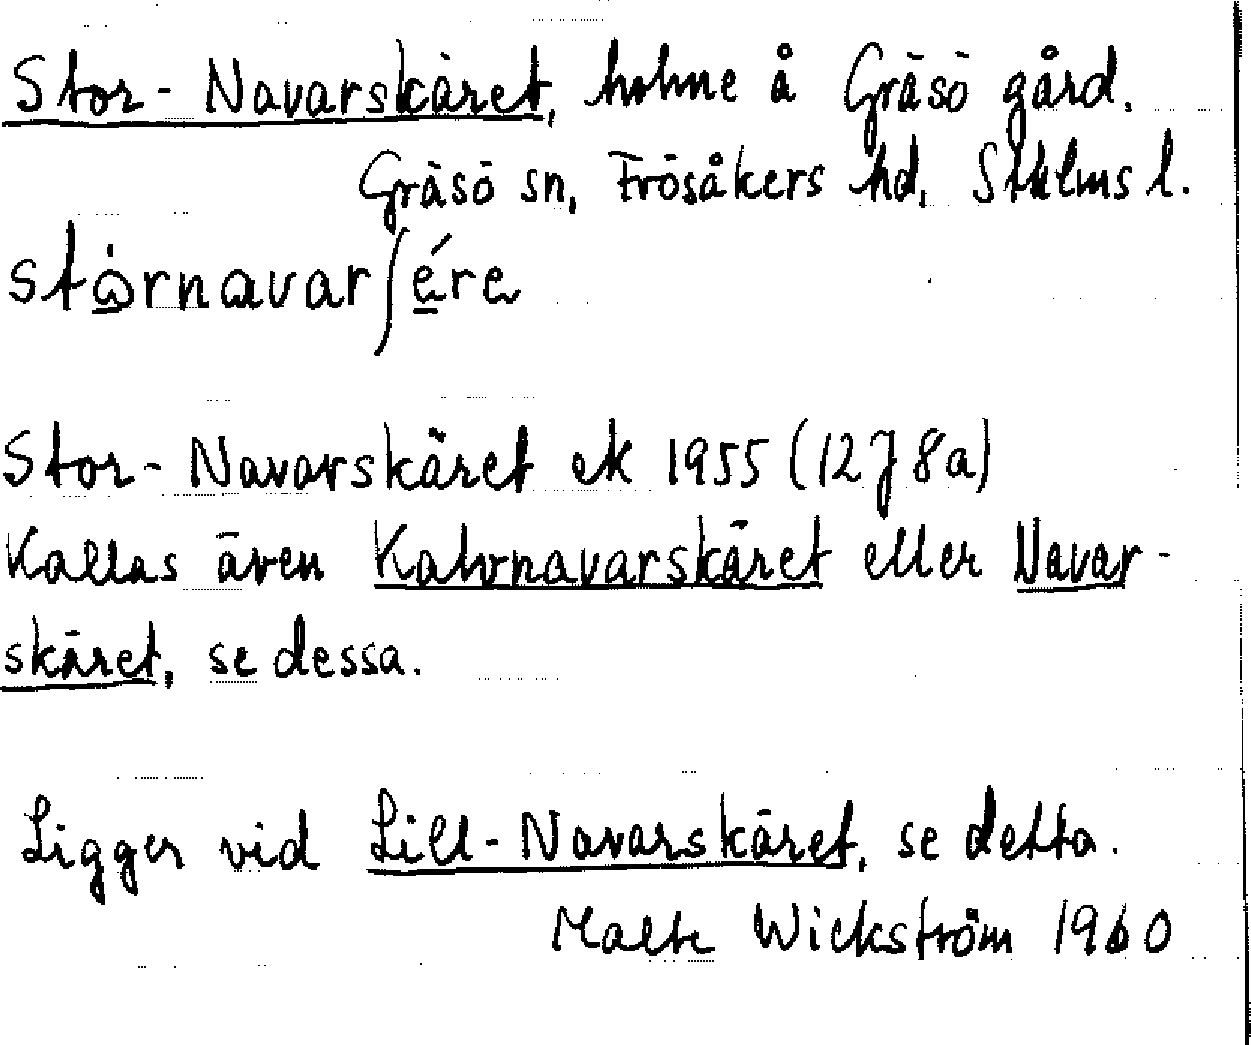 Stor-Navarskäret, holme å Gräsö gård.
Gräsö sn, Frösåkers hd, Sthlms l.
Stor-Navarskäret ek 1955 (12J 8a)
Kallas även Kalvnavarskäret eller Navar-
skäret, se dessa.
Ligger vid Lill-Navarskäret, se detta.
Malte Wickström 1960